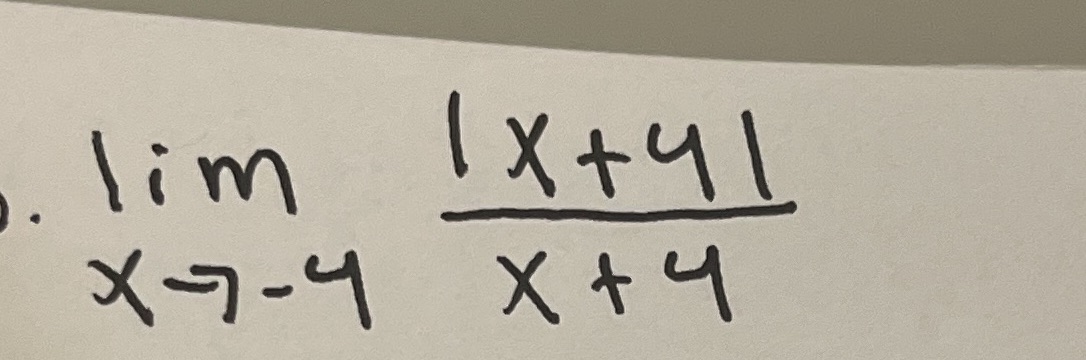 . lim |x+4|
x→-4 x+4